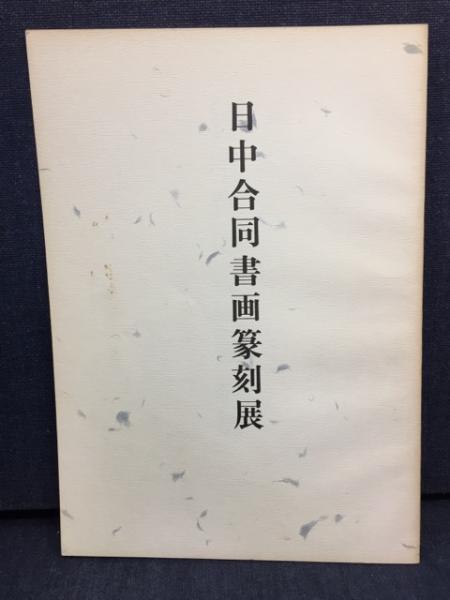 日中合同書画篆刻展